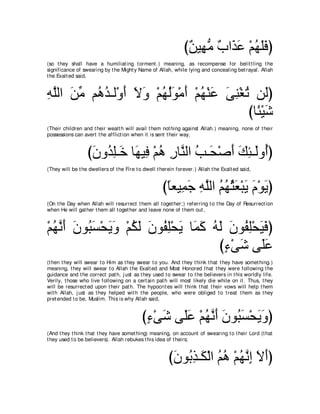 (فَلَهُمْ عَذَابٌ مُّهِينٌ)
(so they shall have a humiliating torment.) meaning, as recompense for belittling the
significance of swearing by the Mighty Name of Allah, while lying and concealing betrayal. Allah
the Exalted said,
(لَن تُغْنِىَ عَنْهُمْ أَمْوَلُهُمْ وَلاَ أَوْلَـدُهُمْ مِّنَ اللَّهِ
شَيْئاً)
(Their children and their wealth will avail them nothing against Allah.) meaning, none of their
possessions can avert the affliction when it is sent their way,
(أُولَـئِكَ أَصْحَـبُ النَّارِ هُمْ فِيهَا خَـلِدُونَ)
(They will be the dwellers of the Fire to dwell therein forever.) Allah the Exalted said,
(يَوْمَ يَبْعَثُهُمُ اللَّهِ جَمِيعاً)
(On the Day when Allah will resurrect them all together;) referring to the Day of Resurrection
when He will gather them all together and leave none of them out,
(فَيَحْلِفُونَ لَهُ كَمَا يَحْلِفُونَ لَكُمْ وَيَحْسَبُونَ أَنَّهُمْ
عَلَى شَىْءٍ)
(then they will swear to Him as they swear to you. And they think that they have something.)
meaning, they will swear to Allah the Exalted and Most Honored that they were following the
guidance and the correct path, just as they used to swear to the believers in this worldly life.
Verily, those who live following on a certain path will most likely die while on it. Thus, they
will be resurrected upon their path. The hypocrites will think that their vows will help them
with Allah, just as they helped with the people, who were obliged to treat them as they
pretended to be, Muslim. This is why Allah said,
(وَيَحْسَبُونَ أَنَّهُمْ عَلَى شَىْءٍ)
(And they think that they have something) meaning, on account of swearing to their Lord (that
they used to be believers). Allah rebukes this idea of theirs;
(أَلاَ إِنَّهُمْ هُمُ الْكَـذِبُونَ)